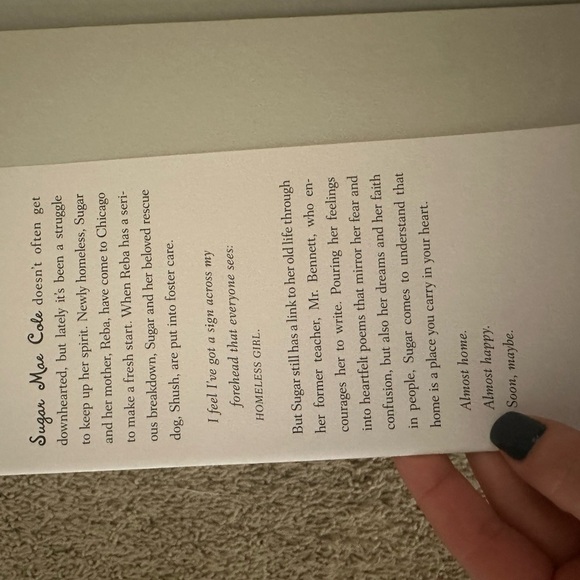 Sugar Mae Cole doesn't often get
downhearted, but lately it's been a struggle
to keep up her spirit. Newly homeless, Sugar
and her mother, Reba, have come to Chicago
to make a fresh start. When Reba has a seri-
ous breakdown, Sugar and her beloved rescue
dog, Shush, are put into foster care.
I feel I've got a sign across my
forehead that everyone sees:
HOMELESS GIRL.
But Sugar still has a link to her old life through
her former teacher, Mr. Bennett, who en-
courages her to write. Pouring her feelings
into heartfelt poems that mirror her fear and
confusion, but also her dreams and her faith
in people, Sugar comes to understand that
home is a place you carry in your heart.
Almost home.
Almost happy.
Soon, maybe.